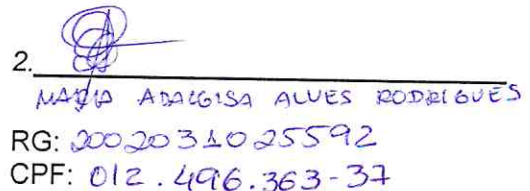 2.
MARIA ADALGISA ALVES RODRIGUES
RG: 20020310 25592
CPF: 012.496.363-37